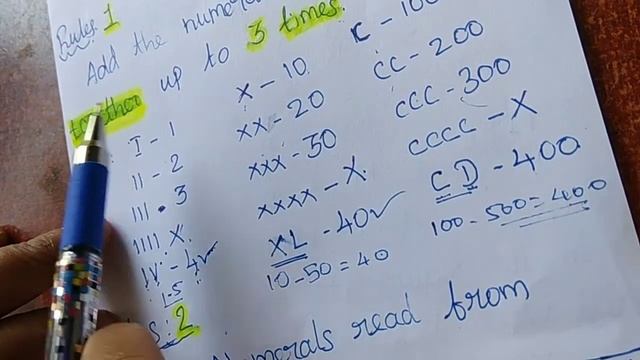 Rules 1
Add the numerals
together up to 3 times.
I - 1
II - 2
III . 3
IIII X.
IV - 4 ✓
1-5
X - 10
XX - 20
XXX - 30
XXXX - X.
XL - 40 ✓
10 - 50 = 40
C - 100
CC - 200
CCC - 300
CCCC - X
CD - 400
100 - 500 = 400
2
Numerals read from